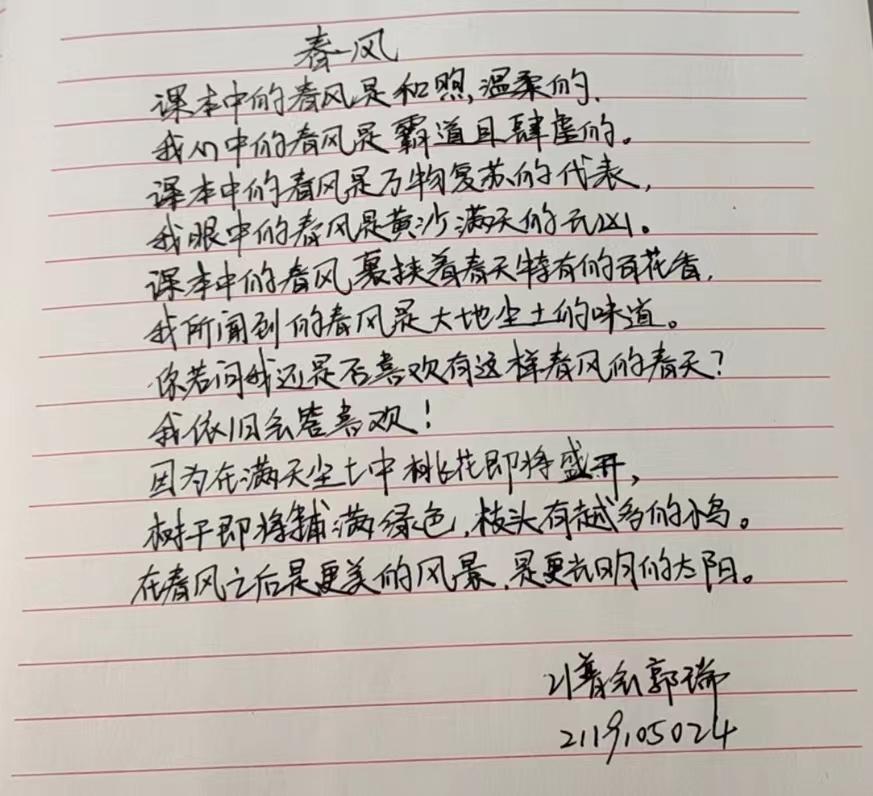 春风
课本中的春风是和煦,温柔的,
我们中的春风是霸道且肆虐的。
课本中的春风是万物复苏的代表,
我眼中的春风是黄沙满天的元凶。
课本中的春风裹挟着春天特有的百花香,
我所闻到的春风是大地尘土的味道。
你若问我还是否喜欢有这样春风的春天?
我依旧会答喜欢!
因为在满天尘土中桃花即将盛开,
树干即将铺满绿色,枝头有越多的小鸟。
在春风之后是更美的风景,是更光明的太阳。
21普会郭瑞
219105024